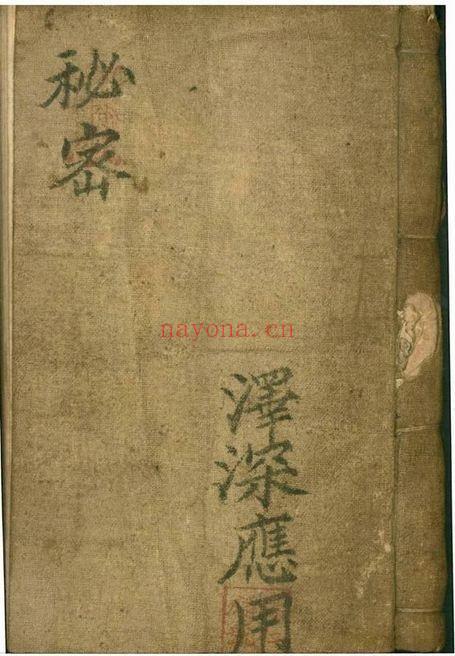 秘密
澤深應用
nayona.cn